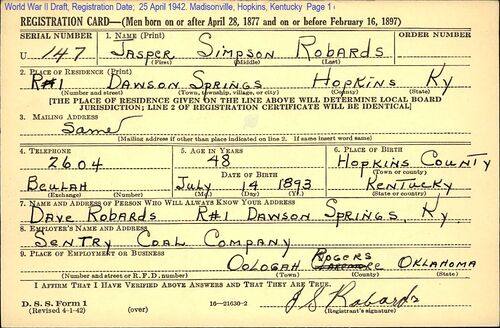 World War II Draft, Registration Date; 25 April 1942. Madisonville, Hopkins, Kentucky Page 1
REGISTRATION CARD—(Men born on or after April 28, 1877 and on or before February 16, 1897)
SERIAL NUMBER 1. NAME (Print) ORDER NUMBER
U 147 JASPER SIMPSON ROBARDS
(First) (Middle) (Last)
2. PLACE OF RESIDENCE (Print)
R#1 DAWSON SPRINGS HOPKINS KY
(Number and street) (Town, township, village, or city) (County) (State)
[THE PLACE OF RESIDENCE GIVEN ON THE LINE ABOVE WILL DETERMINE LOCAL BOARD
JURISDICTION; LINE 2 OF REGISTRATION CERTIFICATE WILL BE IDENTICAL]
3. MAILING ADDRESS
Same
[Mailing address if other than place indicated on line 2. If same insert word same]
4. TELEPHONE 5. AGE IN YEARS 6. PLACE OF BIRTH
2604 48 HOPKINS COUNTY
DATE OF BIRTH (Town or county)
BEULAH JULY 14 1893 KENTUCKY
(Exchange) (Number) (Mo.) (Day) (Yr.) (State or country)
7. NAME AND ADDRESS OF PERSON WHO WILL ALWAYS KNOW YOUR ADDRESS
DAVE ROBARDS R#1 DAWSON SPRINGS, KY
8. EMPLOYER'S NAME AND ADDRESS
SENTRY COAL COMPANY
9. PLACE OF EMPLOYMENT OR BUSINESS
OOLOGAH ROGERS OKLAHOMA
(Number and street or R. F. D. number) (Town) (County) (State)
I AFFIRM THAT I HAVE VERIFIED ABOVE ANSWERS AND THAT THEY ARE TRUE.
D. S. S. Form 1
(Revised 4-1-42) (over) 16—21630-2 J S Robards
(Registrant's signature)